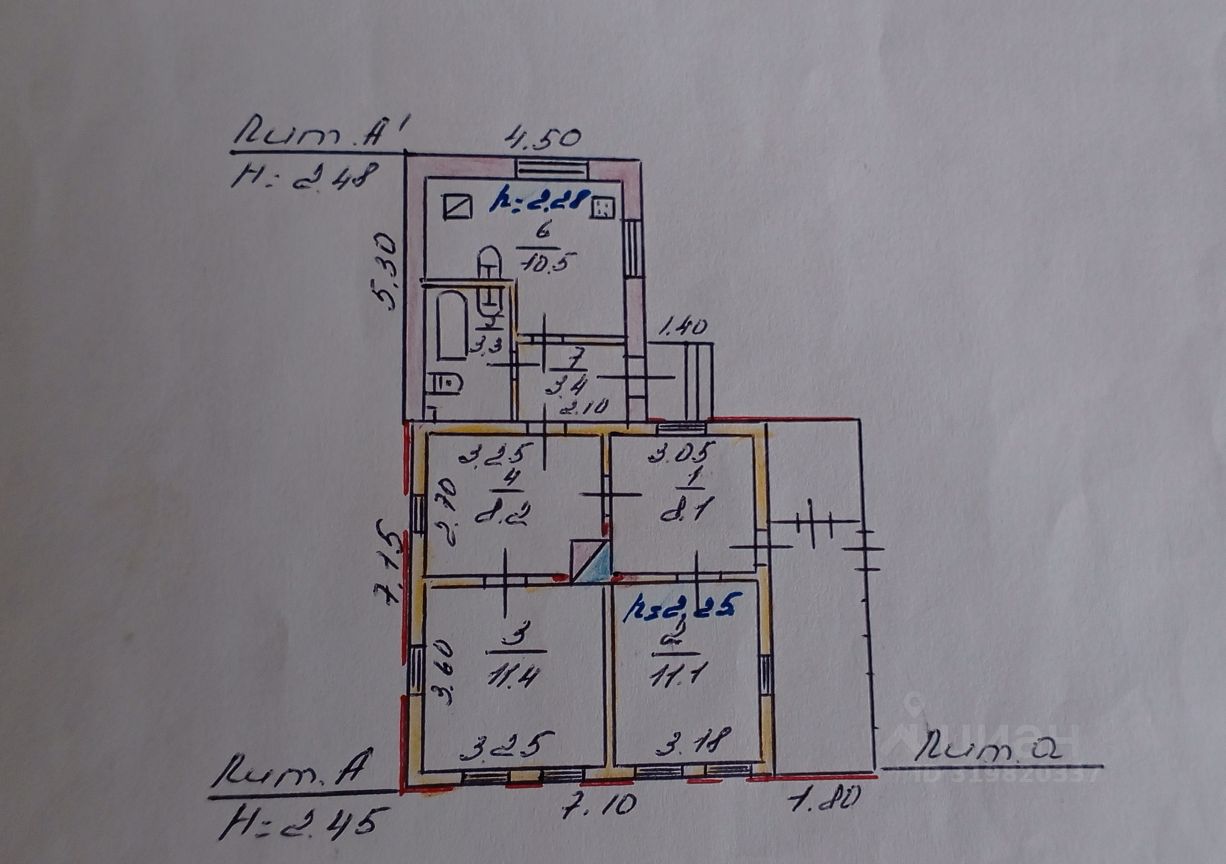 Лит. А'
4.50
Н=2.48
h=2.28
6
10.5
5.30
5
3.3
1.40
7
3.4
2.10
3.25
3.05
4
8.2
1
8.1
2.70
7.15
h=2.25
3
11.4
2
11.1
3.60
3.25
3.18
Лит. А
Н=2.45
7.10
1.80
Лит. а
циан
ID 319820337